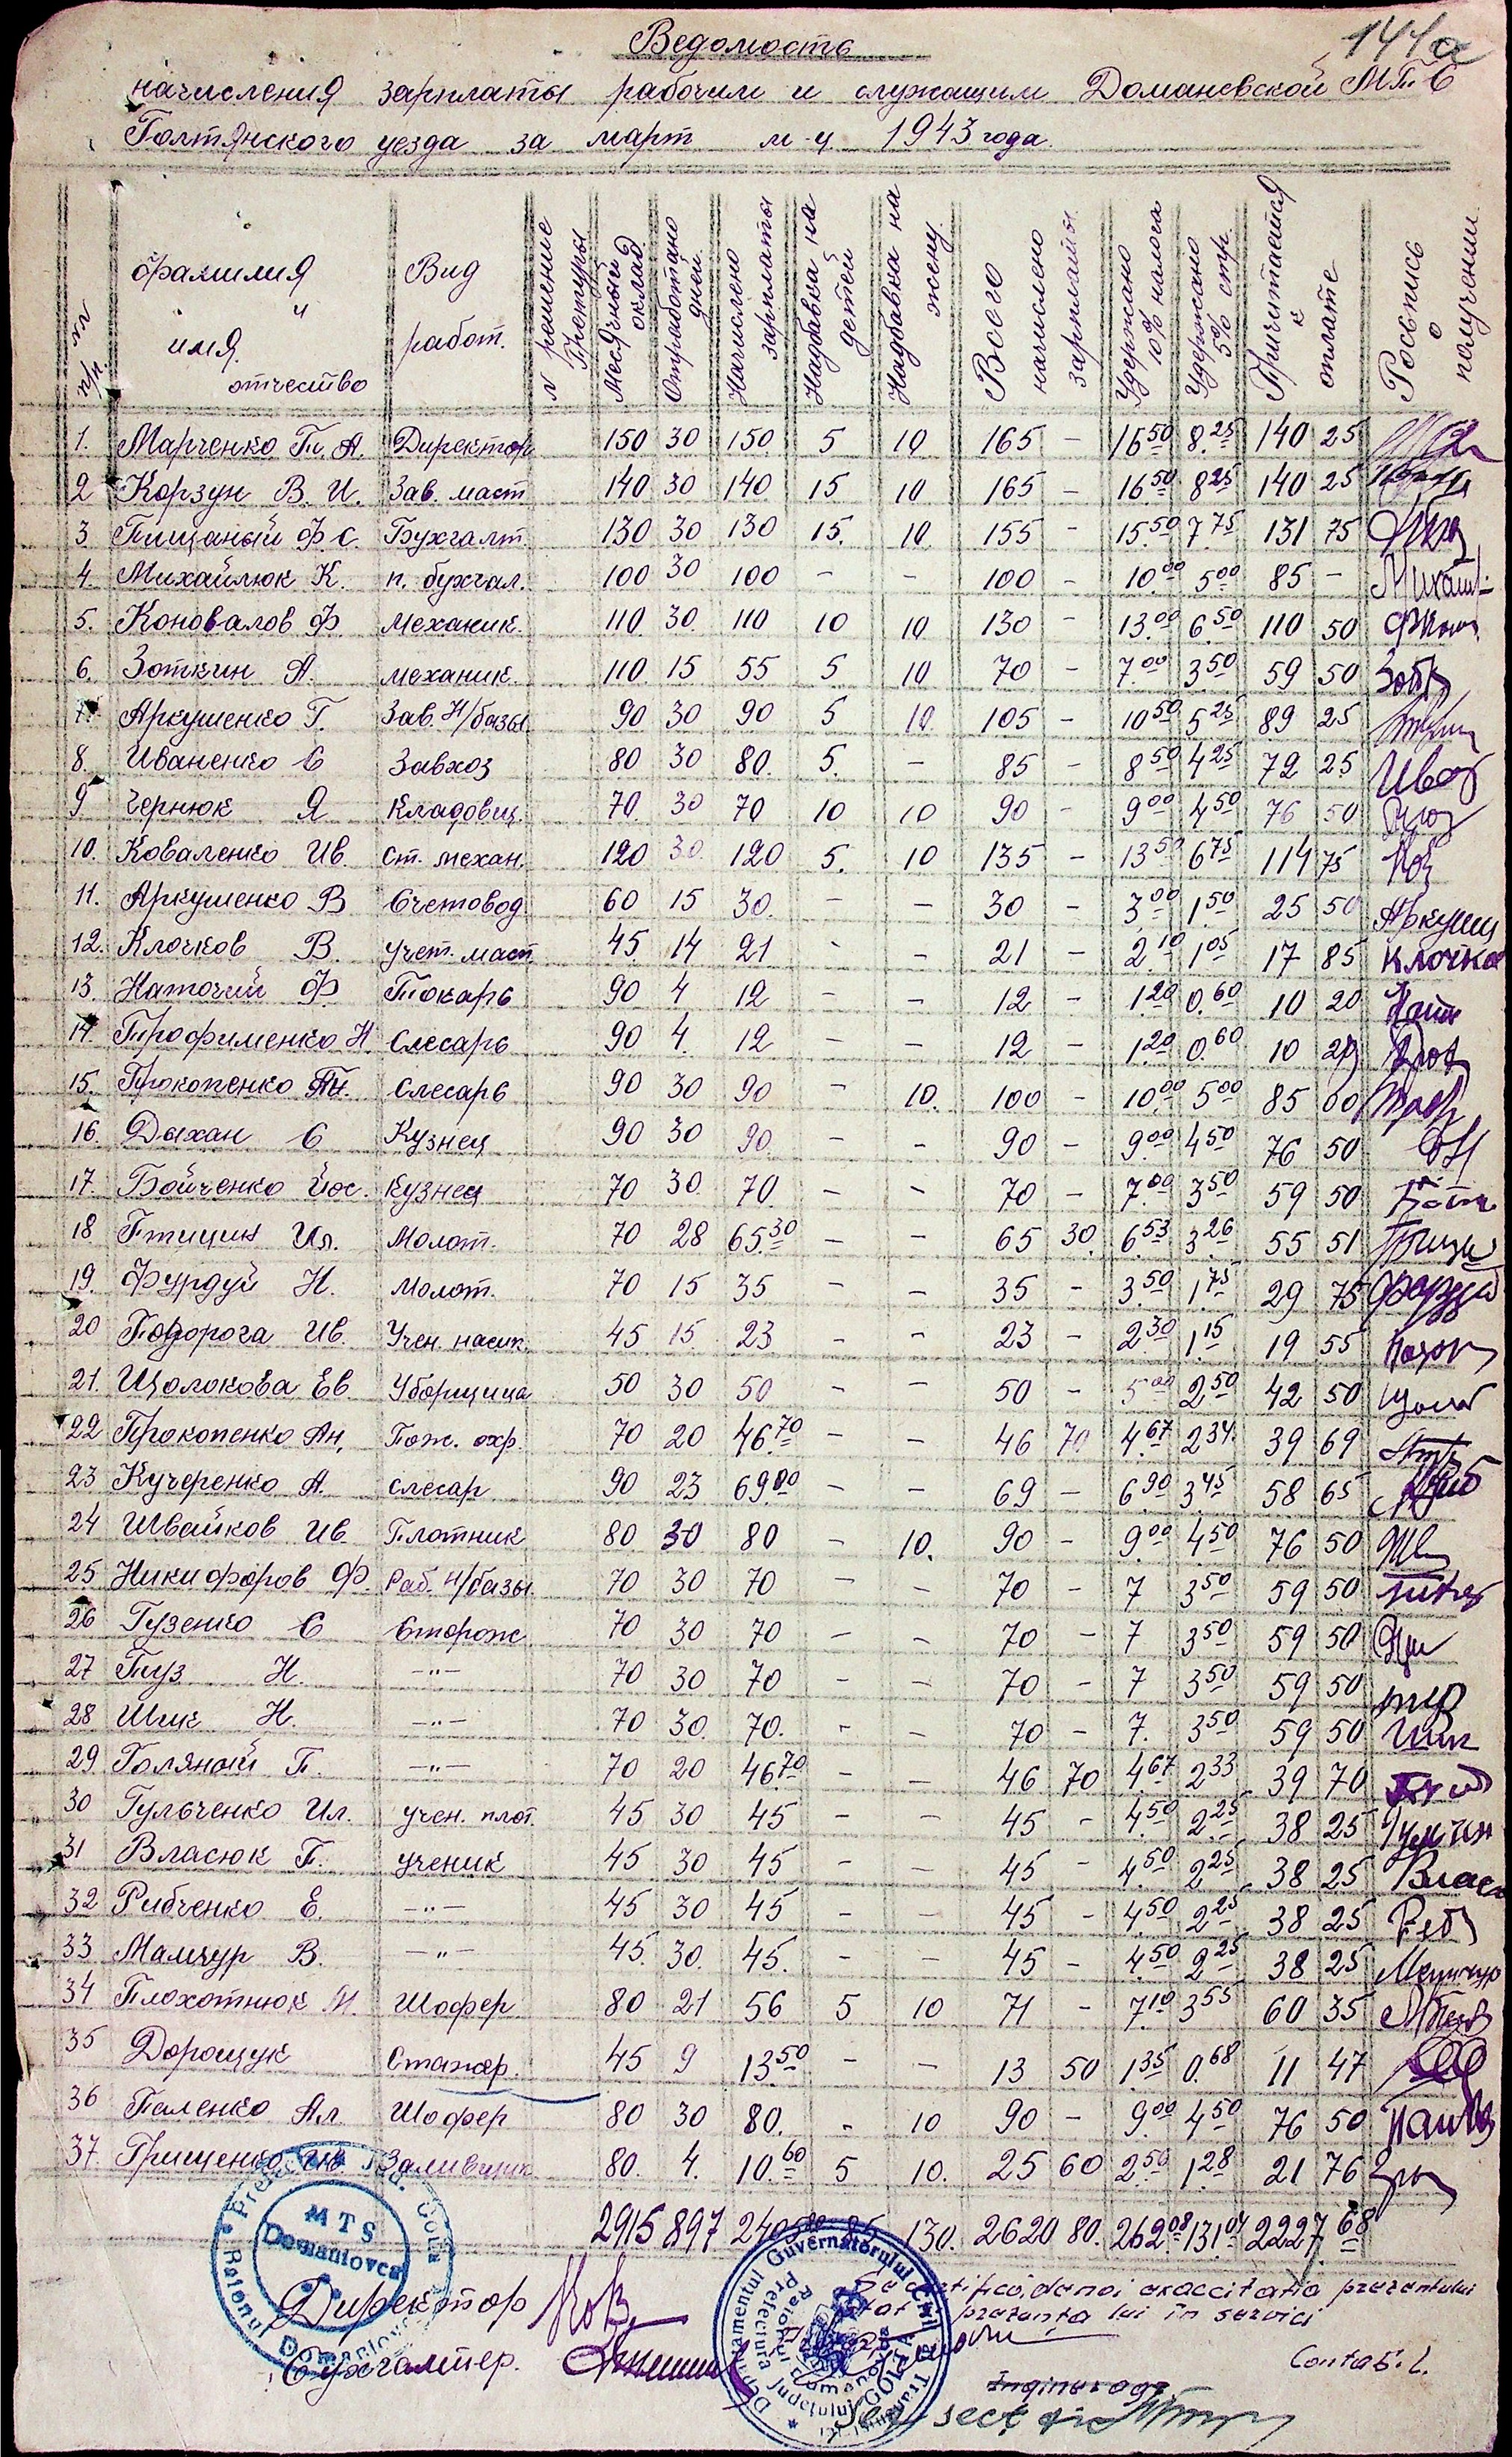 141а
Ведомость
начисления зарплаты рабочим и служащим Домановской МТС
Голтянского уезда за март м-ц 1943 года.
№ п/п. Фамилия и имя отчество Вид работ. № решение Претуры Месячный оклад Отработано дней Начислено зарплаты Надбавка на детей Надбавка на жену. Всего начислено зарплаты Удержано 10% налога Удержано 5% стр. Причитается к оплате Роспись о получении
1. Марченко П. А. Директор 150 30 150 5 10 165 - 16.50 8.25 140 25
2 Корзун В. И. Зав. маст 140 30 140 15 10 165 - 16.50 8.25 140 25
3 Пищаный Ф. С. Бухгалт. 130 30 130 15. 10 155 - 15.50 7.75 131 75
4. Михайлюк К. п. бухгал. 100 30 100 - - 100 - 10.00 5.00 85 -
5. Коновалов Ф. Механик. 110 30. 110 10 10 130 - 13.00 6.50 110 50
6. Зоткин А. механик. 110 15 55 5 10 70 - 7.00 3.50 59 50
7. Аркушенко Г. Зав. Н/базы 90 30 90 5 10 105 - 10.50 5.25 89 25
8. Иваненко С Завхоз 80 30 80. 5. - 85 - 8.50 4.25 72 25
9 Чернюк Я Кладовщ. 70. 30 70 10 10 90 - 9.00 4.50 76 50
10. Коваленко Ив. ст. механ. 120 30. 120 5. 10 135 - 13.50 6.75 114 75
11. Аркушенко В Счетовод 60 15 30. - - 30 - 3.00 1.50 25 50
12. Клочков В. учет. маст 45 14 21 - - 21 - 2.10 1.05 17 85
13. Наточий Ф Токарь 90 4 12 - - 12 - 1.20 0.60 10 20
14. Трофименко Н. Слесарь 90 4. 12 - - 12 - 1.20 0.60 10 20
15. Прокопенко Ан. Слесарь 90 30 90 - 10. 100 - 10.00 5.00 85 00
16. Дыхан С Кузнец 90 30 90. - - 90 - 9.00 4.50 76 50
17. Бойченко Йос. Кузнец 70 30. 70. - - 70 - 7.00 3.50 59 50
18 Птицин Ил. Молот. 70 28 65.30 - - 65 30. 6.53 3.26 55 51
19. Фурдуй Н. Молот. 70 15 35 - - 35 - 3.50 1.75 29 75
20 Подорога Ив. Учен. насик. 45 15. 23 - - 23 - 2.30 1.15 19 55
21. Щолокова Ев. Уборщица 50 30 50 - - 50 - 5.00 2.50 42 50
22 Прокопенко Ан. Пож. охр. 70 20 46.70 - - 46 70 4.67 2.34 39 69
23 Кучеренко А. слесар 90 23 69.00 - - 69 - 6.90 3.45 58 65
24 Швайков Ив. Плотник 80 30 80 - 10. 90 - 9.00 4.50 76 50
25 Никифоров Ф. Раб. Н/базы. 70 30 70 - - 70 - 7 3.50 59 50
26 Гузенко С Сторож 70 30 70 - - 70 - 7 3.50 59 50
27 Пуз Н. -"- 70 30 70 - - 70 - 7 3.50 59 50
28 Шик Н. -"- 70 30. 70. - - 70 - 7. 3.50 59 50
29 Голяный П. -"- 70 20 46.70 - - 46 70 4.67 2.33 39 70
30 Гульченко Ил. учен. плот. 45 30 45 - - 45 - 4.50 2.25 38 25
31 Власюк П. ученик 45 30 45 - - 45 - 4.50 2.25 38 25
32 Рибченко Е. -"- 45 30 45 - - 45 - 4.50 2.25 38 25
33 Мамчур В. -"- 45. 30. 45. - - 45 - 4.50 2.25 38 25
34 Плохотнюк М. Шофер 80 21 56 5 10 71 - 7.10 3.55 60 35
35 Дорощук Стажер. 45 9 13.50 - - 13 50 1.35 0.68 11 47
36 Паленко Ал. Шофер 80 30 80. - 10 90 - 9.00 4.50 76 50
37. Грищенко Заливщик 80. 4. 10.60 5 10. 25 60 2.50 1.28 21 76
2915 897 2405 85 130. 2620 80. 262.08 131.04 2227.68
MTS
Domaniovca
Raionul Domaniovca
Директор
Бухгалтер.
Departamentul Guvernatorului Civil al
Prefectura Judeţului
prezentului
prezenta lui în servici
Contabil.
sect